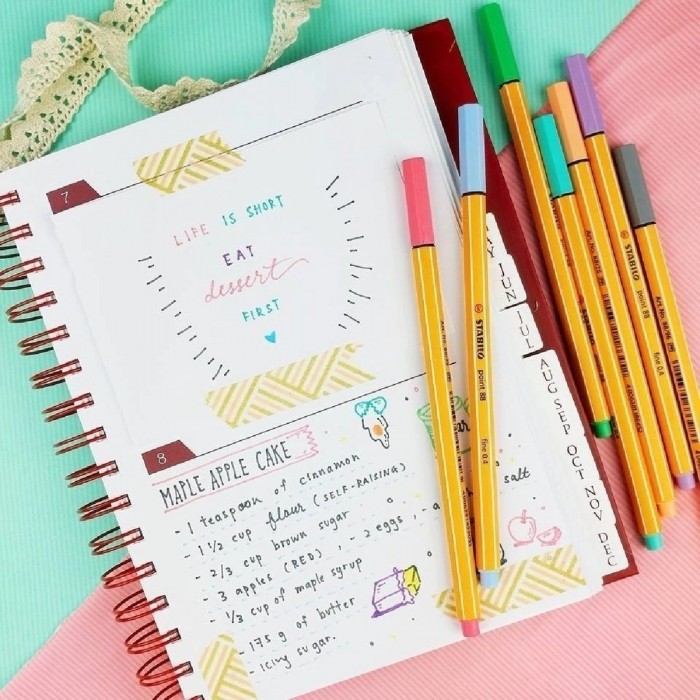 7
LIFE IS SHORT
EAT
dessert
FIRST
8
MAPLE APPLE CAKE
- 1 teaspoon of cinnamon
- 1 1/2 cup flour (SELF-RAISING)
- 2/3 cup brown sugar
- 3 apples (RED), - 2 eggs, - a salt
- 1/3 cup of maple syrup
- 175 g of butter
- icing sugar.
JUN
JUL
AUG
SEP
OCT
NOV
DEC
STABILO
point 88
fine 0.4
STABILO
point 88
fine 0.4